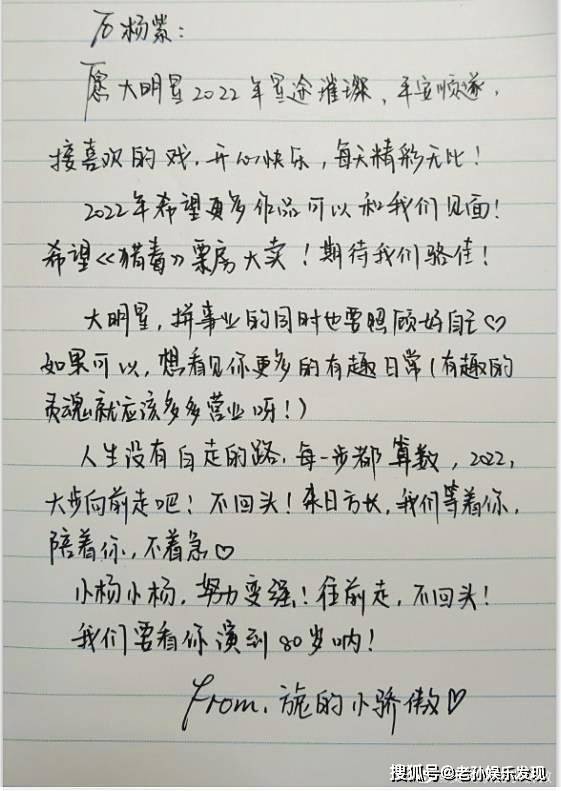 To 杨紫：
愿大明星2022年星途璀璨、平安顺遂，
接喜欢的戏，开心快乐，每天精彩无比！
2022年希望更多作品可以和我们见面！
希望《猎毒》票房大卖！期待我们骆佳！
大明星，拼事业的同时也要照顾好自己♡
如果可以，想看见你更多的有趣日常(有趣的
灵魂就应该多多营业呀！)
人生没有白走的路，每一步都算数，2022，
大步向前走吧！不回头！来日方长，我们等着你，
陪着你，不着急♡
小杨小杨，努力变强！往前走，不回头！
我们要看你演到80岁呐！
From. 旎的小骄傲♡
搜狐号@老孙娱乐发现